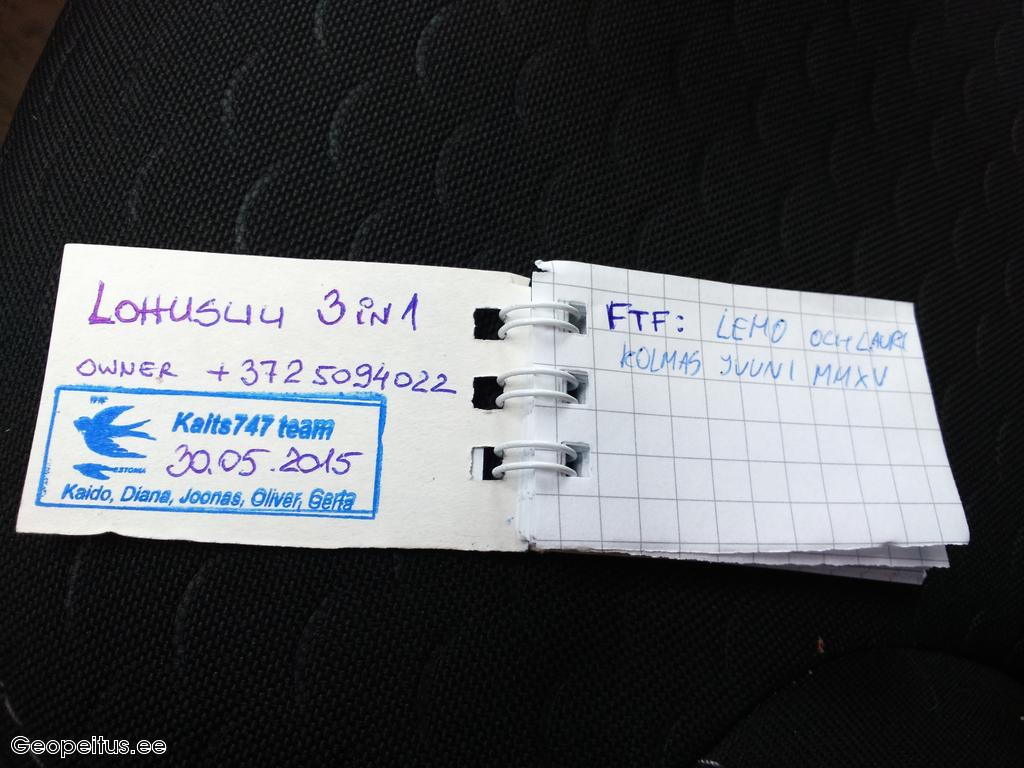 LOHUSUU 3 in 1
OWNER +372 5094022
Kaits747 team
ESTONIA
30.05.2015
Kaido, Diana, Joonas, Oliver, Gerta
FTF: LEMO OCH LAURI
KOLMAS JUUNI MMXV
Geopeitus.ee